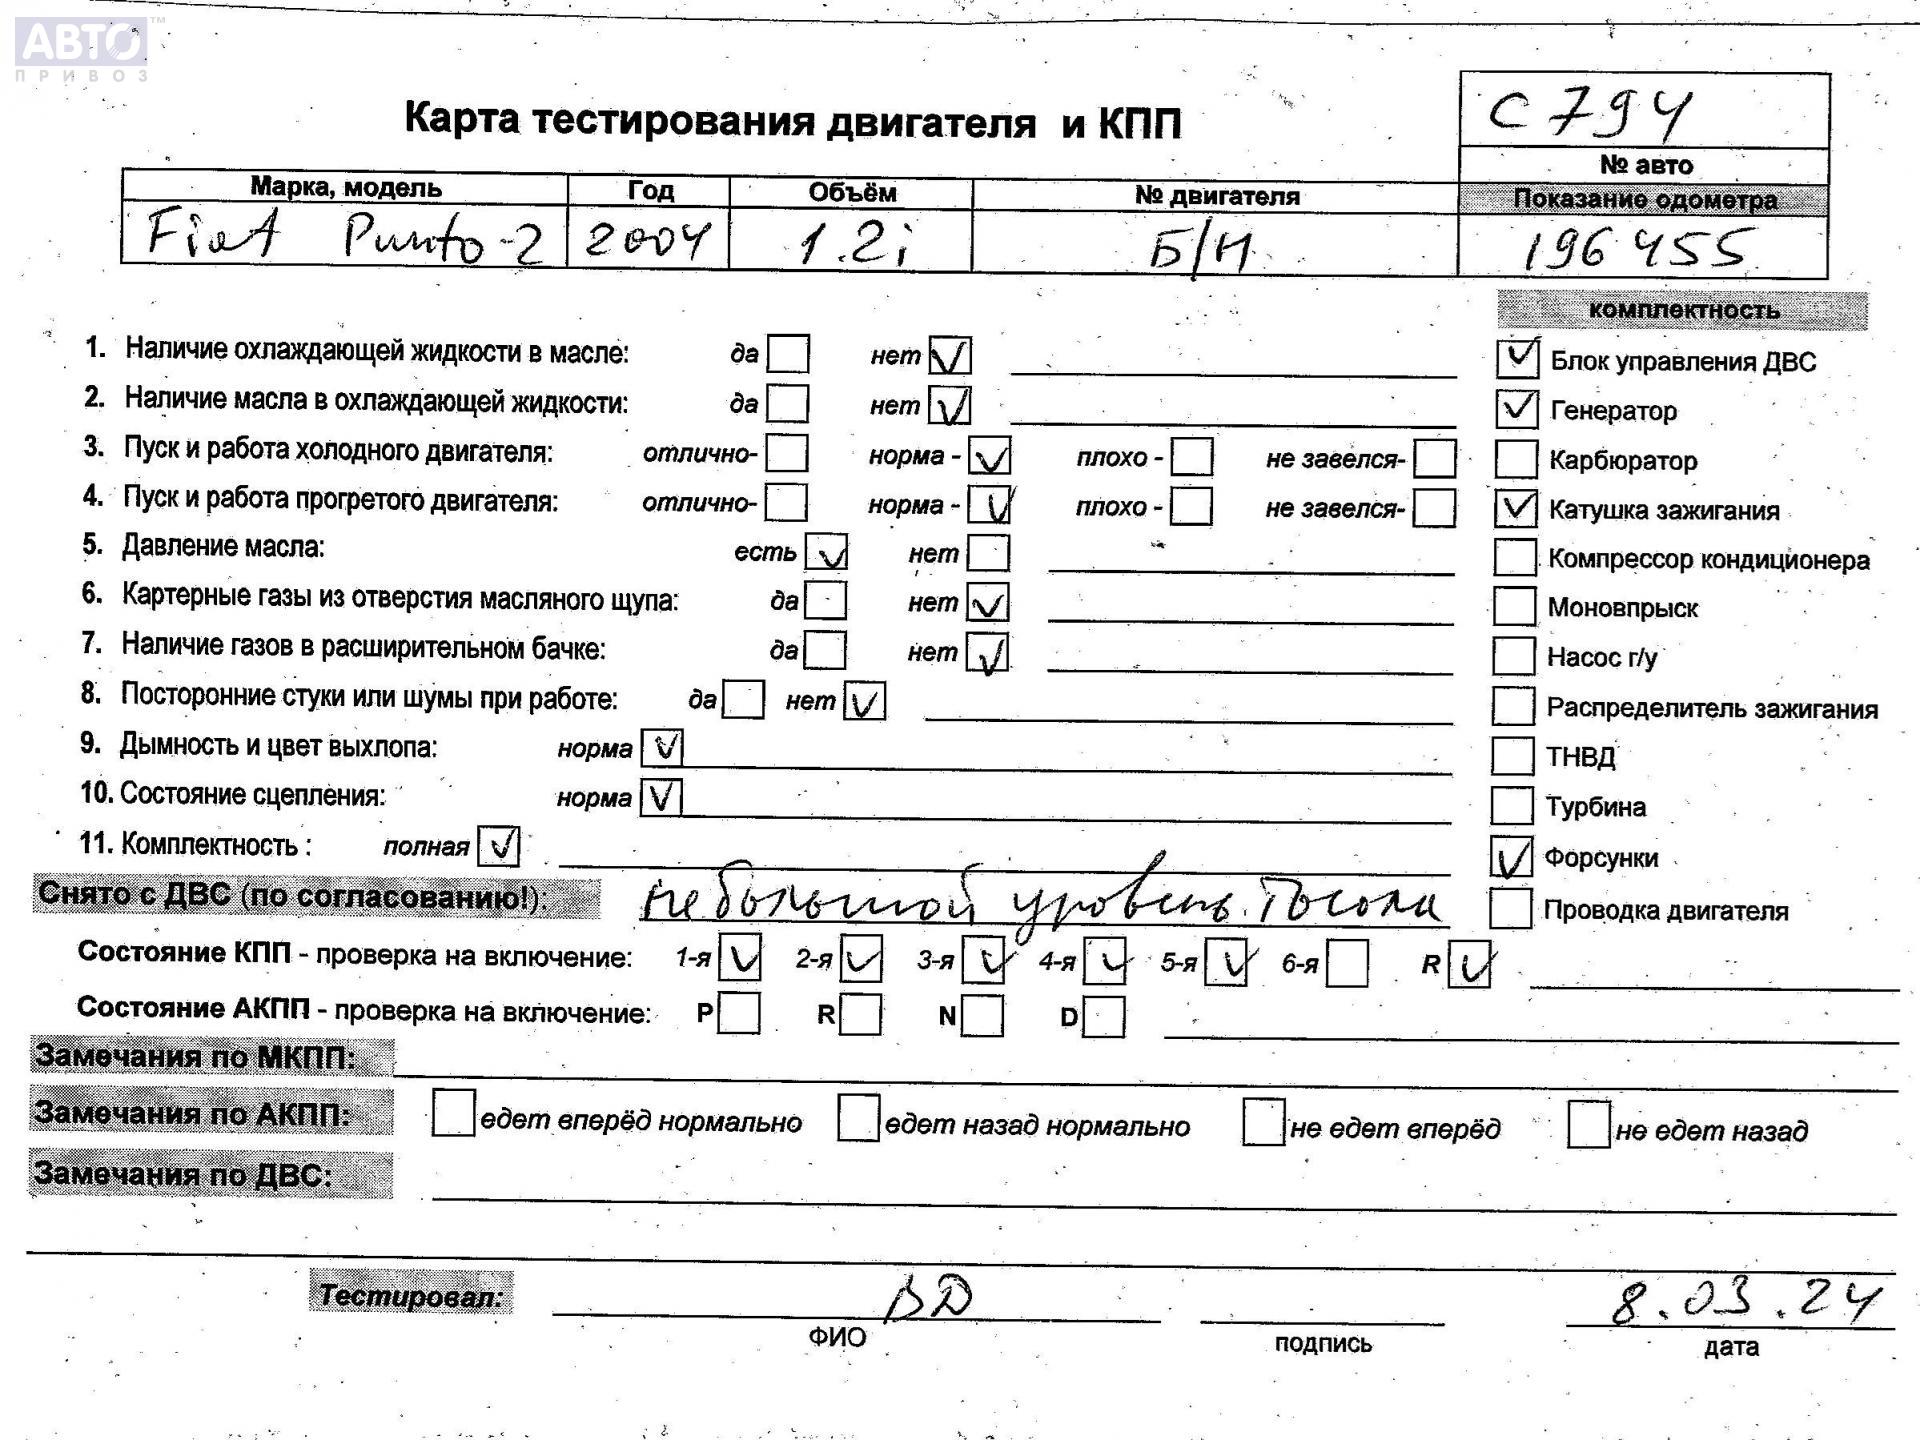 АВТО™
ПРИВОЗ
С 794
Карта тестирования двигателя и КПП
№ авто
Марка, модель Год Объём № двигателя Показание одометра
Fiat Punto-2 2004 1.2i Б/Н 196 455
комплектность
1. Наличие охлаждающей жидкости в масле: да нет ✓
✓ Блок управления ДВС
2. Наличие масла в охлаждающей жидкости: да нет ✓
✓ Генератор
3. Пуск и работа холодного двигателя: отлично- норма - ✓ плохо - не завелся-
Карбюратор
4. Пуск и работа прогретого двигателя: отлично- норма - ✓ плохо - не завелся-
✓ Катушка зажигания
5. Давление масла: есть ✓ нет
Компрессор кондиционера
6. Картерные газы из отверстия масляного щупа: да нет ✓
Моновпрыск
7. Наличие газов в расширительном бачке: да нет ✓
Насос г/у
8. Посторонние стуки или шумы при работе: да нет ✓
Распределитель зажигания
9. Дымность и цвет выхлопа: норма ✓
ТНВД
10. Состояние сцепления: норма ✓
Турбина
11. Комплектность : полная ✓
✓ Форсунки
Снято с ДВС (по согласованию!): небольшой уровень Тосола
Проводка двигателя
Состояние КПП - проверка на включение: 1-я ✓ 2-я ✓ 3-я ✓ 4-я ✓ 5-я ✓ 6-я R ✓
Состояние АКПП - проверка на включение: P R N D
Замечания по МКПП:
Замечания по АКПП: едет вперёд нормально едет назад нормально не едет вперёд не едет назад
Замечания по ДВС:
Тестировал: ВД 8.03.24
ФИО подпись дата